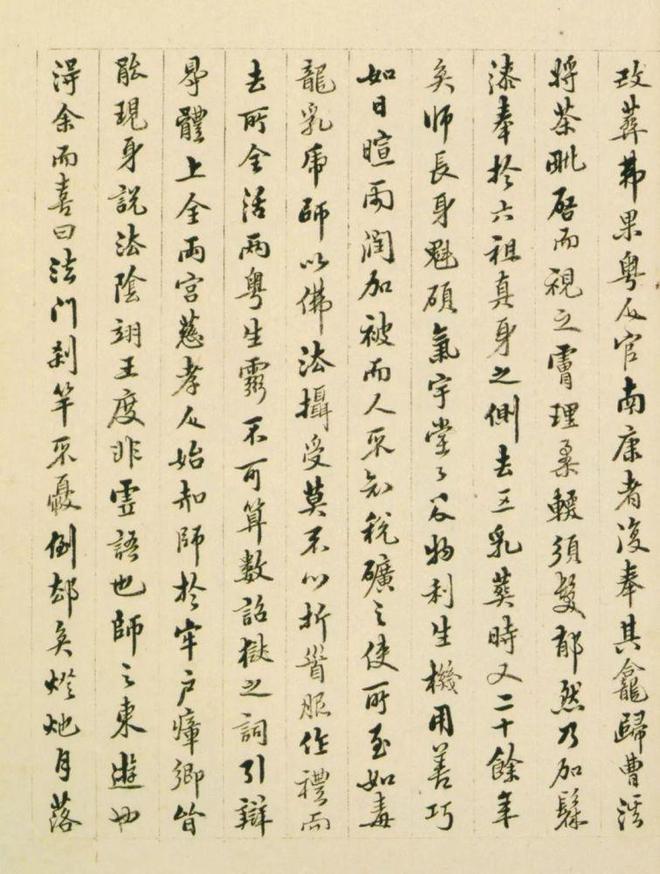 攺葬弗果粤人官南康者復奉其龕歸曹溪
將茶毗啓而視之膚理柔輭須髮郁然乃加髹
漆奉於六祖真身之側去三乳葬時又二十餘年
矣師長身魁碩氣宇堂々及物利生機用善巧
如日暄雨潤加被而人不知稅礦之使所至如毒
龍乳虎師以佛法攝受莫不心折首服作禮而
去所全活兩粤生靈不可算數詔獄之詞引辯
舉體上全兩宮慈孝人始知師於牢戶瘴鄉皆
能現身說法陰翊王度非虛語也師之東遊也
得余而喜曰法門剎竿不憂倒却矣燈炧月落